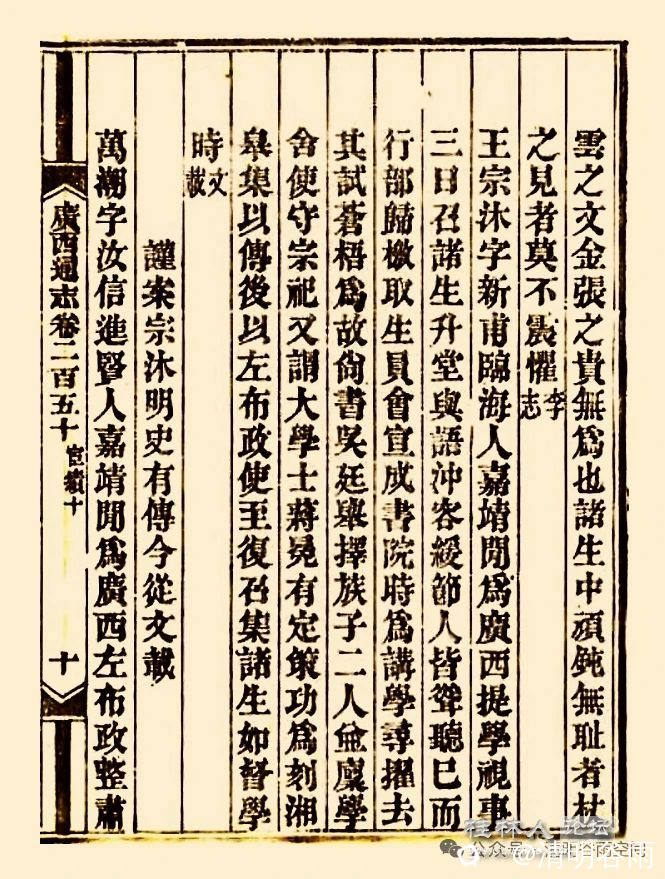 雲之文金張之貴無為也諸生中頑鈍無恥者杖
之見者莫不震懼李志
王宗沐字新甫臨海人嘉靖閒為廣西提學視事
三日召諸生升堂與語沖容緩節人皆聳聽已而
行部歸檄取生員會宣成書院時為講學尋擢去
其試蒼梧為故尚書吳廷舉擇族子二人僉廩學
舍使守宗祀又謂大學士蔣冕有定策功為刻湘
皋集以傳後以左布政使至復召集諸生如督學
時文載
謹案宗沐明史有傳今從文載
萬潮字汝信進賢人嘉靖閒為廣西左布政整肅
廣西通志卷二百五十 宦績十 十
桂林人论坛
公众号
@清明谷雨